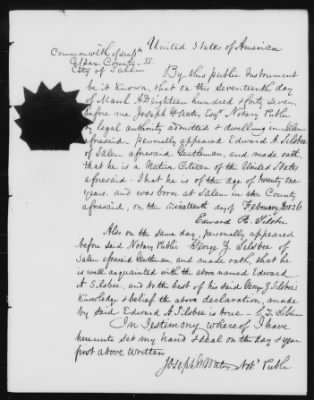 United States of America
Commonwealth of
Essex County ss.
City of Salem
By this public Instrument
be it Known, that on this seventeenth day
of March, Eighteen hundred & forty seven,
before me Joseph Esqr Notary Public
by legal authority admitted & dwelling in Salem
aforesaid, personally appeared Edward A. Silsbee
of Salem aforesaid Gentleman, and made oath,
that he is a Native Citizen of the United States
aforesaid. That he is of the age of Twenty one
years. and was born at Salem in the County
aforesaid, on the nineteenth day of February 1826
Edward A. Silsbee
Also on the same day, personally appeared
before said Notary Public George Z. Silsbee of
Salem aforesaid Gentleman and made oath, that he
is well acquainted with the above named Edward
A Silsbee, and to the best of his said George Z Silsbee's
Knowledge & belief the above declaration, made
by said Edward A Silsbee is true - Silsbee
In Testimony whereof I have
hereunto set my hand & Seal on the day & year
first above written
Joseph G Waters Not. Public